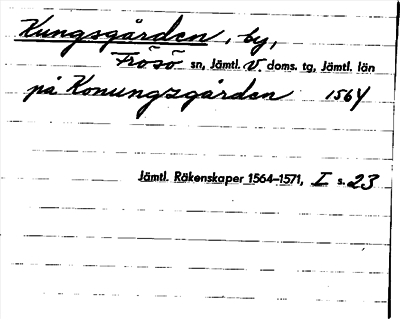 Kungsgården, by,
Frösö sn, Jämtl. V. doms. tg, Jämtl. län
på Konungzgården 1564
Jämtl. Räkenskaper 1564–1571, I s. 23